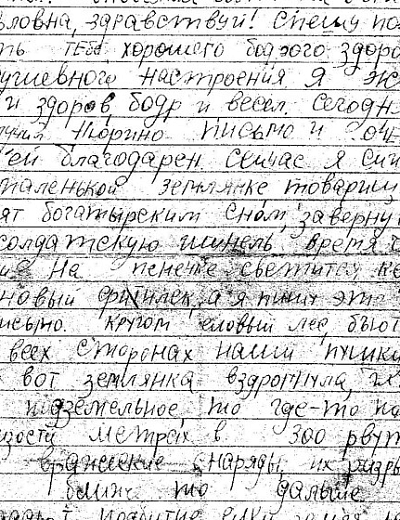 вловна, здравствуй! Спешу по
ть тебе хорошего бодрого здоро
ушевного настроения Я
и здоров, бодр и весел. Сегодн
лучил Норино письмо и оче
ей благодарен. Сейчас я
маленькой землянке товарищ
ят богатырским сном, заверну
солдатскую шинель, время
на пенечке светится
новый фитилек, а я пишу эт
исьмо. Кругом еловый лес, бьют
всех сторонах наши пушки
вот землянка вздрогнула,
подземельное, то где-то по
изости метрах в 300 рвут
вражеские снаряды, их разры
ближе то дальше